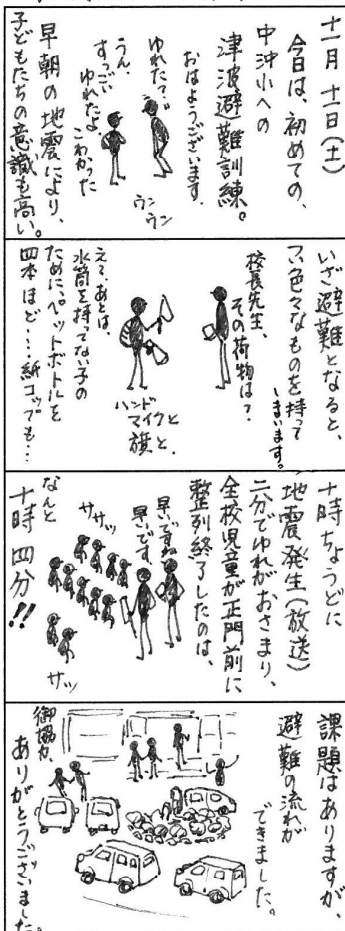 十一月十一日(土)
今日は、初めての、
中沖小への
津波避難訓練。
おはようございます。
ゆれた?
うん。
すっごい
ゆれたよ
こわかった
ウン
ウン
早朝の地震により、
子どもたちの意識も高い。
いざ避難となると、
つい色々なものを持って
しまいます。
校長先生、
その荷物は?
ハンド
マイクと
旗と、
えと、あとは、
水筒を持ってない子の
ために。ペットボトルを
四本ほど…紙コップも…
十時ちょうどに
地震発生(放送)
二分でゆれがおさまり、
全校児童が正門前に
整列終了したのは、
早いですね
早いです
ササッ
サッ
なんと
十時四分!!
課題はありますが、
避難の流れが
できました。
御協力、
ありがとうございました。